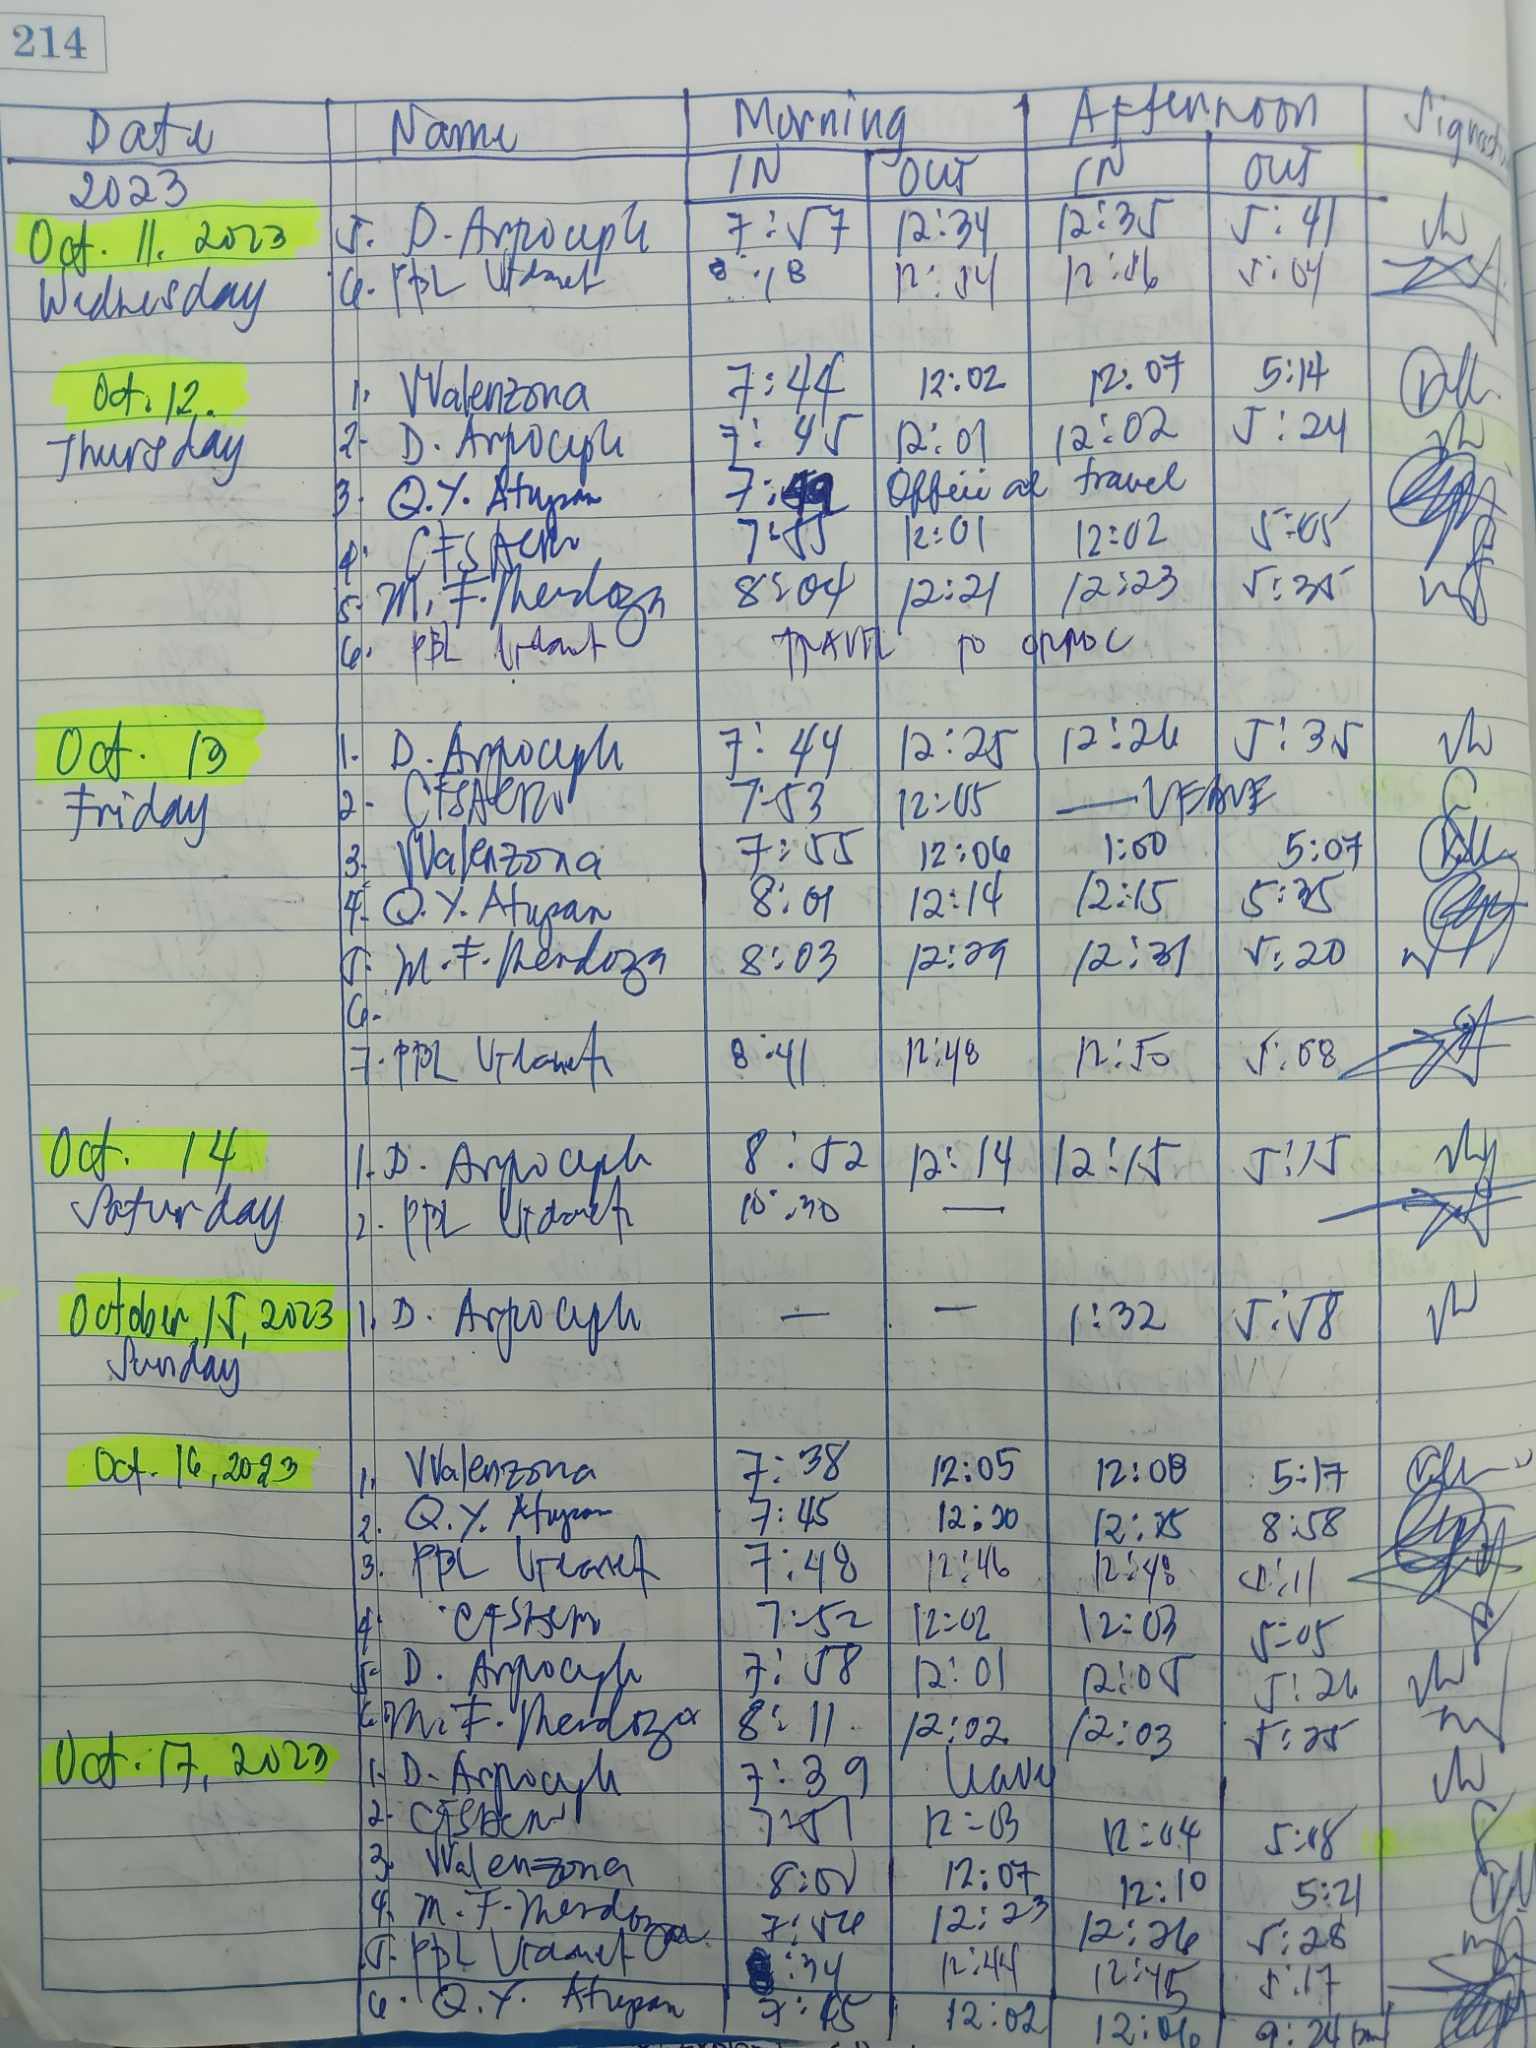 214
Date Name Morning Afternoon
IN OUT IN OUT
2023
Oct. 11. 2023 5. D. Arpoceph 7:57 12:34 12:35 5:41
Wednesday 6. PBL 8:18 12:54 12:56 5:04
Oct. 12. 1. VValenzona 7:44 12:02 12:07 5:14
Thursday 2- D. Arpoceph 7:45 12:01 12:02 5:24
3. Q.Y. Atupan 7: Official travel
4. 7:55 12:01 12:02 5:05
5- M. F. Mendoza 8:04 12:21 12:23 5:35
6. PBL TRAVEL TO ORMOC
Oct. 13 1. D. Arpoceph 7:44 12:25 12:26 5:35
Friday 2- 7:53 12:05 — LEAVE
3. VValenzona 7:55 12:06 1:00 5:07
4. Q.Y. Atupan 8:01 12:14 12:15 5:35
5. M.F. Mendoza 8:03 12:29 12:31 5:20
6.
7. PBL 8:41 12:48 12:50 5:08
Oct. 14 1. D. Arpoceph 8:52 12:14 12:15 5:15
Saturday 2. PBL 10:30 —
October 15, 2023 1. D. Arpoceph — — 1:32 5:58
Sunday
Oct. 16, 2023 1. VValenzona 7:38 12:05 12:08 5:17
2. Q.Y. Atupan 7:45 12:20 12:25 8:58
3. PBL 7:48 12:46 12:48 5:11
4. 7:52 12:02 12:03 5:05
5- D. Arpoceph 7:58 12:01 12:05 5:26
6. M.F. Mendoza 8:11 12:02 12:03 5:25
Oct. 17, 2023 1. D. Arpoceph 7:39 leave
2- 7:51 12:03 12:04 5:08
3. VValenzona 8:00 12:07 12:10 5:21
4. M.F. Mendoza 7:56 12:23 12:26 5:28
5. PBL 8:34 12:44 12:45 5:17
6. Q.Y. Atupan 7:45 12:02 12:06 9:24 pm